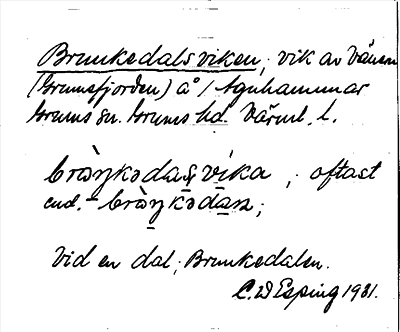 Brunkedalsviken, vik av Vänern
(Grumsfjorden) å / Agnhammar
Grums sn. Grums hd. Värml. l.
brὼŋkədaʂvika, oftast
end. - brὼŋkədan;
Vid en dal, Brunkedalen.
C. W Esping 1931.